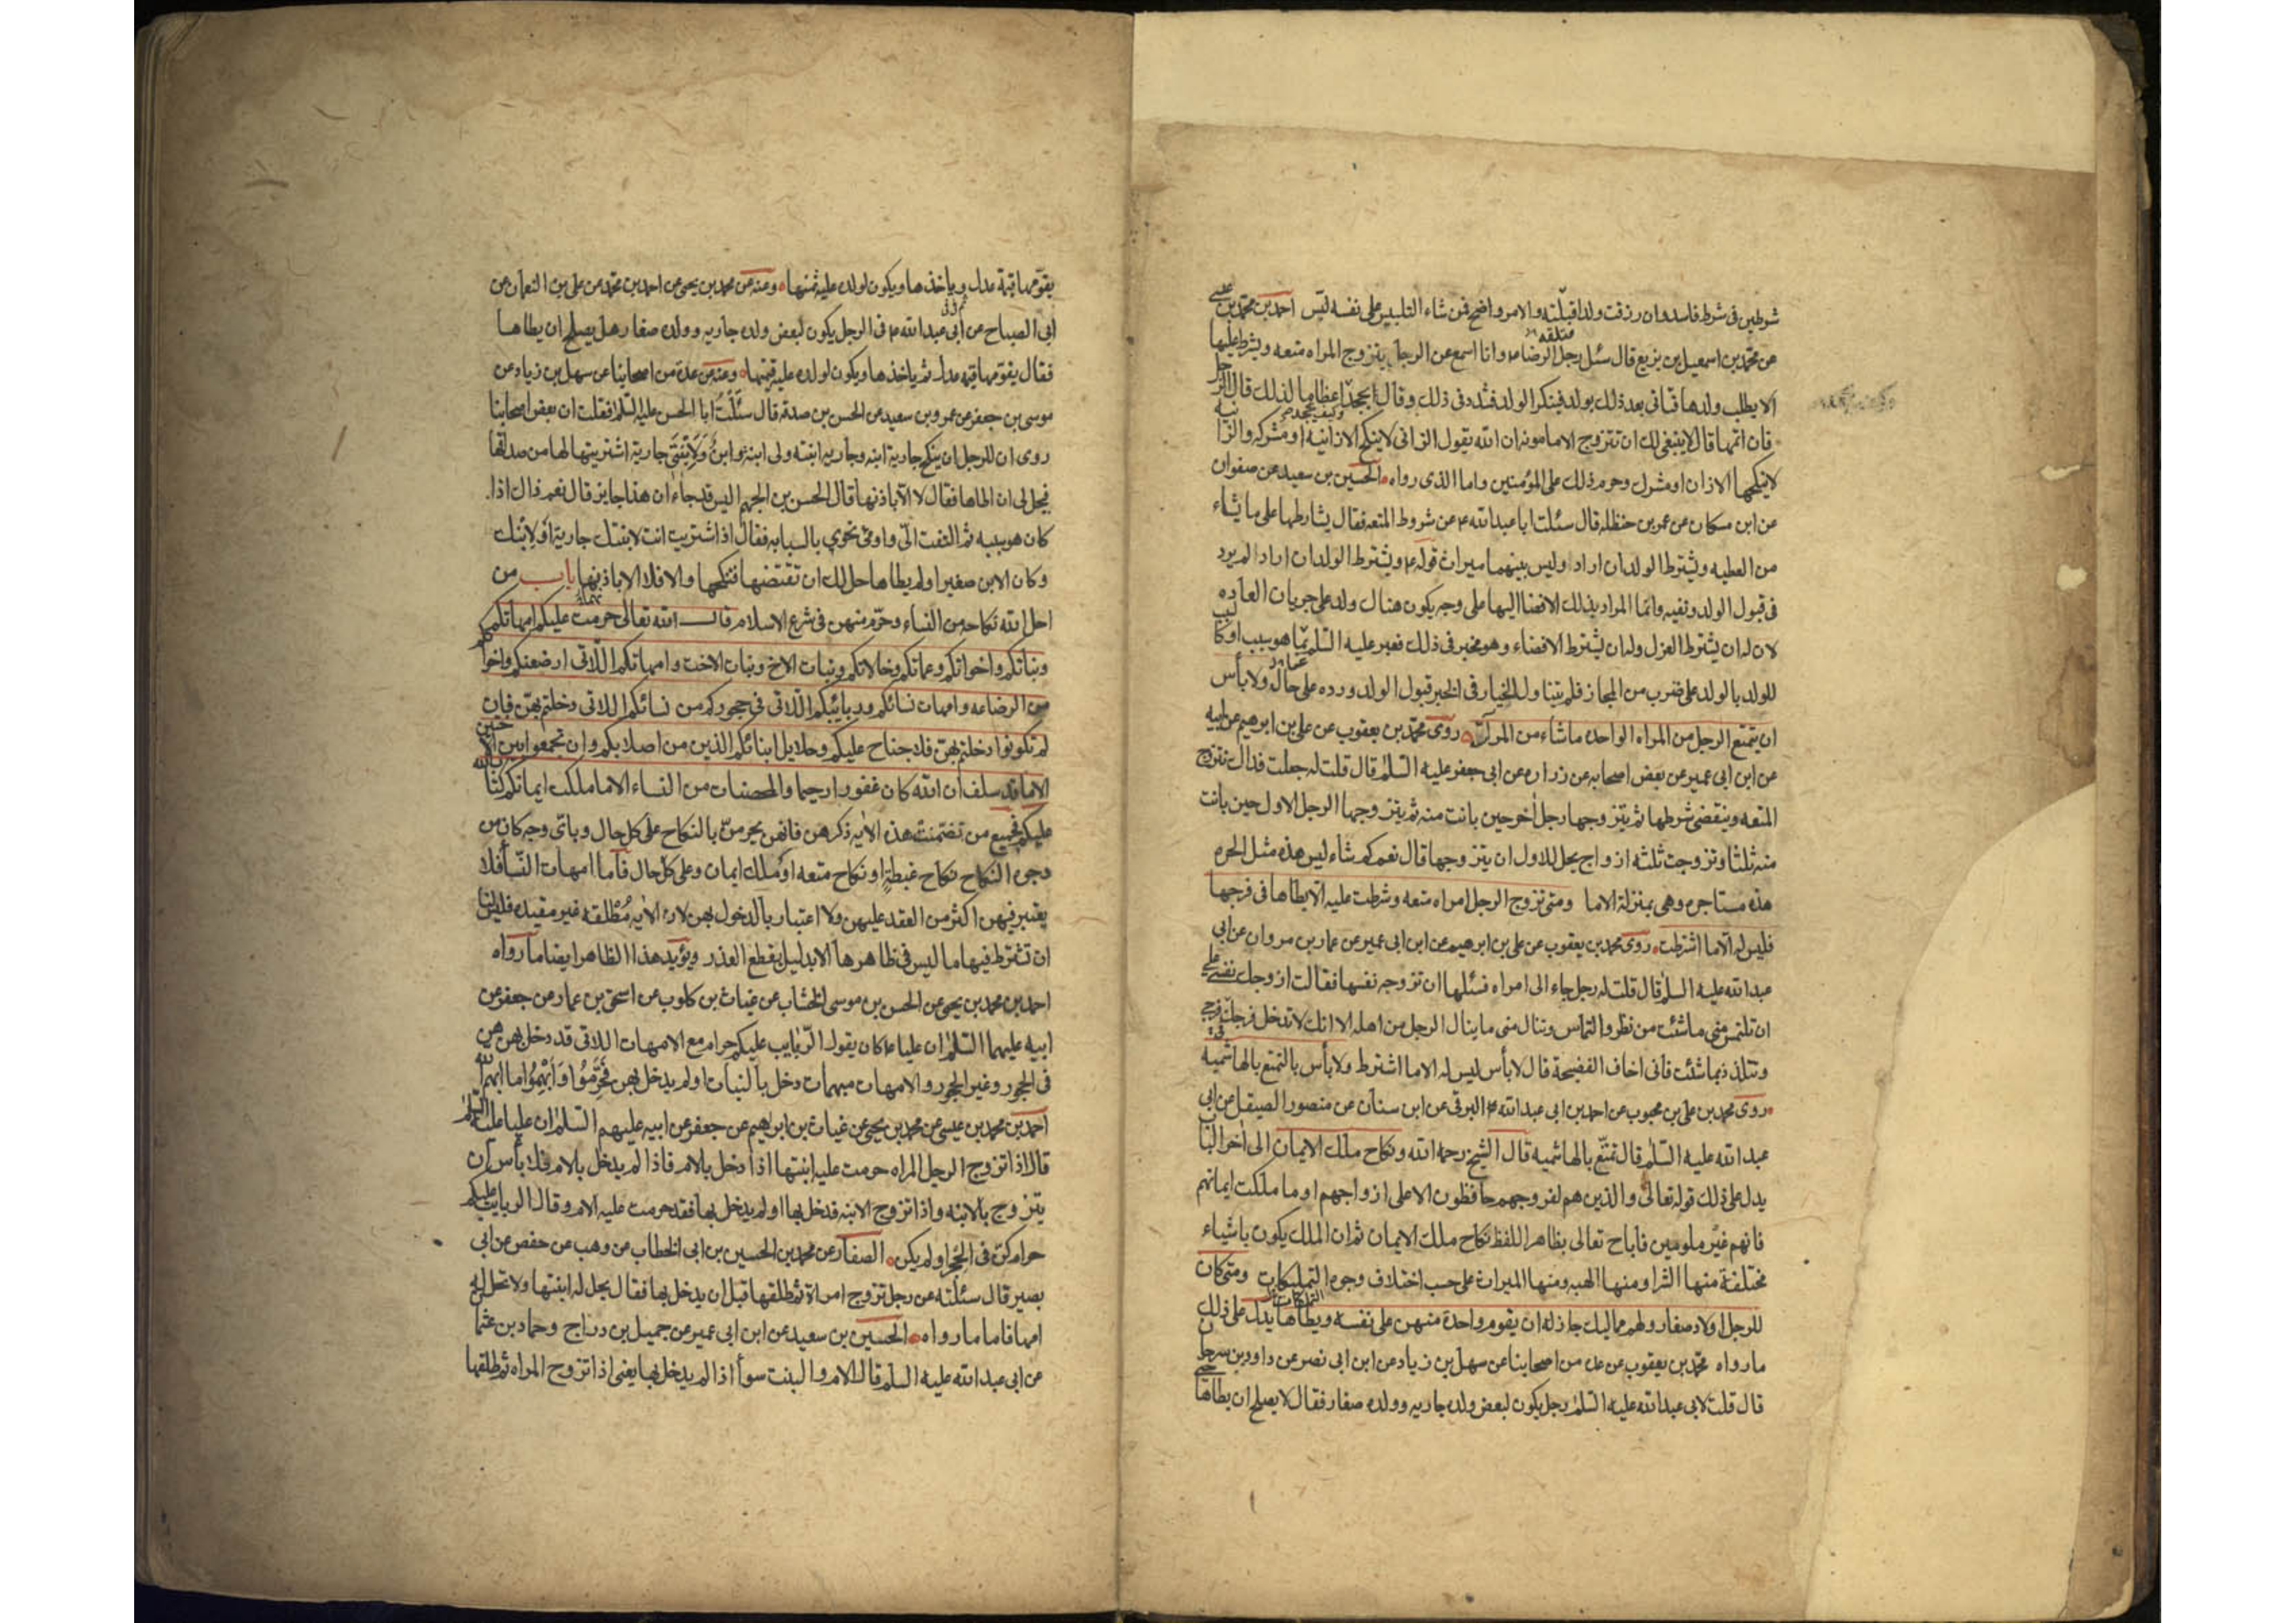 شرطين فى شرط فاسد وان رزقت ولدا قبلته والامر واضح فمن شاء التلبيس على نفسه لبّس احمد بن محمد بن عيسى
عن محمد بن اسمعيل بن بزيع قال سئل رجل الرضا ع وانا اسمع عن الرجل يتزوج المراه متعه ويشترط عليها
الا يطلب ولدها فتاتى بعد ذلك بولد فينكر الولد فشدد فى ذلك وقال ايجحد اعظاما لذلك قال الرجل
فان اتهمها قال لا ينبغى لك ان تتزوج الا مامونه ان الله يقول الزانى لا ينكح الا زانية او مشركه والزانيه
لا ينكحها الا زان او مشرك وحرم ذلك على المؤمنين واما الذى رواه الحسين بن سعيد عن صفوان
عن ابن مسكان عن عمر بن حنظله قال سئلت ابا عبد الله ع عن شروط المتعه فقال يشارطها على ما يشاء
من العطيه ويشترط الولد ان اراد وليس بينهما ميراث قوله ع ويشترط الولد ان اراد لم يرد
فى قبول الولد ونفيه وانما المراد بذلك الافضا اليها على وجه يكون هناك ولد على جريان العاده
لان له ان يشترط العزل وله ان يشترط الافضاء وهو مخير فى ذلك فعبر عليه السلم عما هو سبب او كالسبب
للولد بالولد على ضرب من المجاز فلم يتناول الخيار فى الخبر قبول الولد ورده على حال ولا باس
ان يتمتع الرجل من المراه الواحده ما شاء من المرات روى محمد بن يعقوب عن على بن ابرهيم عن ابيه
عن ابن ابى عمير عن بعض اصحابه عن زراره عن ابى جعفر عليه السلم قال قلت له جعلت فداك تتزوج
المتعه وينقضى شرطها ثم يتزوجها رجل اخر حين بانت منه ثم يتزوجها الرجل الاول حين بانت
منه ثلثا وتزوجت ثلثه ازواج يحل للاول ان يتزوجها قال نعم كم شاء ليس هذه مثل الحره
هذه مستاجره وهى بمنزلة الاما ومتى تزوج الرجل امراه متعه وشرطت عليه الا يطاها فى فرجها
فليس له الا ما اشترطت روى محمد بن يعقوب عن على بن ابرهيم عن ابن ابى عمير عن عمار بن مروان عن ابى
عبد الله عليه السلم قال قلت له رجل جاء الى امراه فسئلها ان تزوجه نفسها فقالت ازوجك نفسى على
ان تلتمس منى ما شئت من نظر والتماس وتنال منى ما ينال الرجل من اهله الا انك لا تدخل فرجك فى فرجى
وتتلذذ بما شئت فانى اخاف الفضيحة قال لا بأس ليس له الا ما اشترط ولا بأس بالتمتع بالهاشميه
روى محمد بن على بن محبوب عن احمد بن ابى عبد الله البرقى عن ابن سنان عن منصور الصيقل عن ابى
عبد الله عليه السلم قال تمتع بالهاشميه قال الشيخ رحمه الله ونكاح ملك الايمان الى اخر الباب
يدل على ذلك قوله تعالى والذين هم لفروجهم حافظون الا على ازواجهم او ما ملكت ايمانهم
فانهم غير ملومين فاباح تعالى بظاهر اللفظ نكاح ملك الايمان ثم ان الملك يكون باشياء
مختلفة منها الشرا ومنها الهبه ومنها الميراث على حسب اختلاف وجوه التمليكات ومتى كان
للرجل اولاد صغار ولهم مماليك جاز له ان يقوم واحدة منهن على نفسه ويطاها يدل على ذلك
ما رواه محمد بن يعقوب عن عده من اصحابنا عن سهل بن زياد عن ابن ابى نصر عن داود بن سرحان
قال قلت لابى عبد الله عليه السلم رجل يكون لبعض ولده جاريه وولده صغار فقال لا يصلح ان يطاها حتى
يقومها قيمة عدل وياخذها ويكون لولده عليه ثمنها وعنه عن محمد بن يحيى عن احمد بن محمد عن على بن النعمان عن
ابى الصباح عن ابى عبد الله ع فى الرجل يكون لبعض ولده جاريه وولده صغار هل يصلح ان يطاها
فقال يقومها قيمه عدل ثم ياخذها ويكون لولده عليه قيمتها وعنه عن عدة من اصحابنا عن سهل بن زياد عن
موسى بن جعفر عن عمرو بن سعيد عن الحسن بن صدقه قال سئلت ابا الحسن عليه السلم فقلت ان بعض اصحابنا
روى ان للرجل ان ينكح جارية ابنه وجاريه ابنته ولى ابنه وابن ولابنتى جارية اشتريتها لها من صداقها
فيحل لى ان اطاها فقال لا الا باذنها قال الحسن بن الجهم اليس قد جاء ان هذا جايز قال نعم ذاك اذا
كان هو سببه ثم التفت الى واومى نحوى بالسبابه فقال اذ اشتريت انت لابنتك جارية او لابنك
وكان الابن صغيرا ولم يطاها حل لك ان تقتضها فتنكحها والا فلا الا باذنها باب من
احل الله نكاحه من النساء وحرم منهن فى شرع الاسلام قال الله تعالى حرمت عليكم امهاتكم
وبناتكم واخواتكم وعماتكم وخالاتكم وبنات الاخ وبنات الاخت وامهاتكم اللاتى ارضعنكم واخواتكم
من الرضاعه وامهات نسائكم وربائبكم اللاتى فى حجوركم من نسائكم اللاتى دخلتم بهن فان
لم تكونوا دخلتم بهن فلا جناح عليكم وحلايل ابنائكم الذين من اصلابكم وان تجمعوا بين الاختين
الا ما قد سلف ان الله كان غفورا رحيما والمحصنات من النساء الا ما ملكت ايمانكم كتاب الله
عليكم فجميع من تضمنت هذه الايه ذكرهن فانهن يحرمن بالنكاح على كل حال وباى وجه كان من
وجوه النكاح نكاح غبطة او نكاح متعه او ملك ايمان وعلى كل حال فاما امهات النسا فلا
يعتبر فيهن اكثر من العقد عليهن ولا اعتبار بالدخول بهن لان الايه مطلقه غير مقيده فليس لنا
ان نشترط فيها ما ليس فى ظاهرها الا بدليل يقطع العذر ويؤيد هذا الظاهر ايضا ما رواه
احمد بن محمد بن يحيى عن الحسن بن موسى الخشاب عن غياث بن كلوب عن اسحق بن عمار عن جعفر عن
ابيه عليهما السلم ان عليا ع كان يقول الربايب عليكم حرام مع الامهات اللاتى قد دخل بهن هن
فى الحجور وغير الحجور والامهات مبهمات دخل بالبنات او لم يدخل بهن فحرموا وابهموا ما ابهم الله
احمد بن محمد بن عيسى عن محمد بن يحيى عن غياث بن ابراهيم عن جعفر عن ابيه عليهم السلم ان عليا عليه السلم
قال اذا تزوج الرجل المراه حرمت عليه ابنتها اذا دخل بالام فاذا لم يدخل بالام فلا بأس ان
يتزوج بالابنه واذا تزوج الابنه فدخل بها او لم يدخل بها فقد حرمت عليه الام وقال الربايب عليكم
حرام كن فى الحجر او لم يكن الصفار عن محمد بن الحسين بن ابى الخطاب عن وهب بن حفص عن ابى
بصير قال سئلته عن رجل تزوج امراة ثم طلقها قبل ان يدخل بها فقال يحل له ابنتها ولا تحل له
امها فاما ما رواه الحسين بن سعيد عن ابن ابى عمير عن جميل بن دراج وحماد بن عثمان
عن ابى عبد الله عليه السلم قال الام والبنت سوآ اذا لم يدخل بها يعنى اذا تزوج المراه ثم طلقها